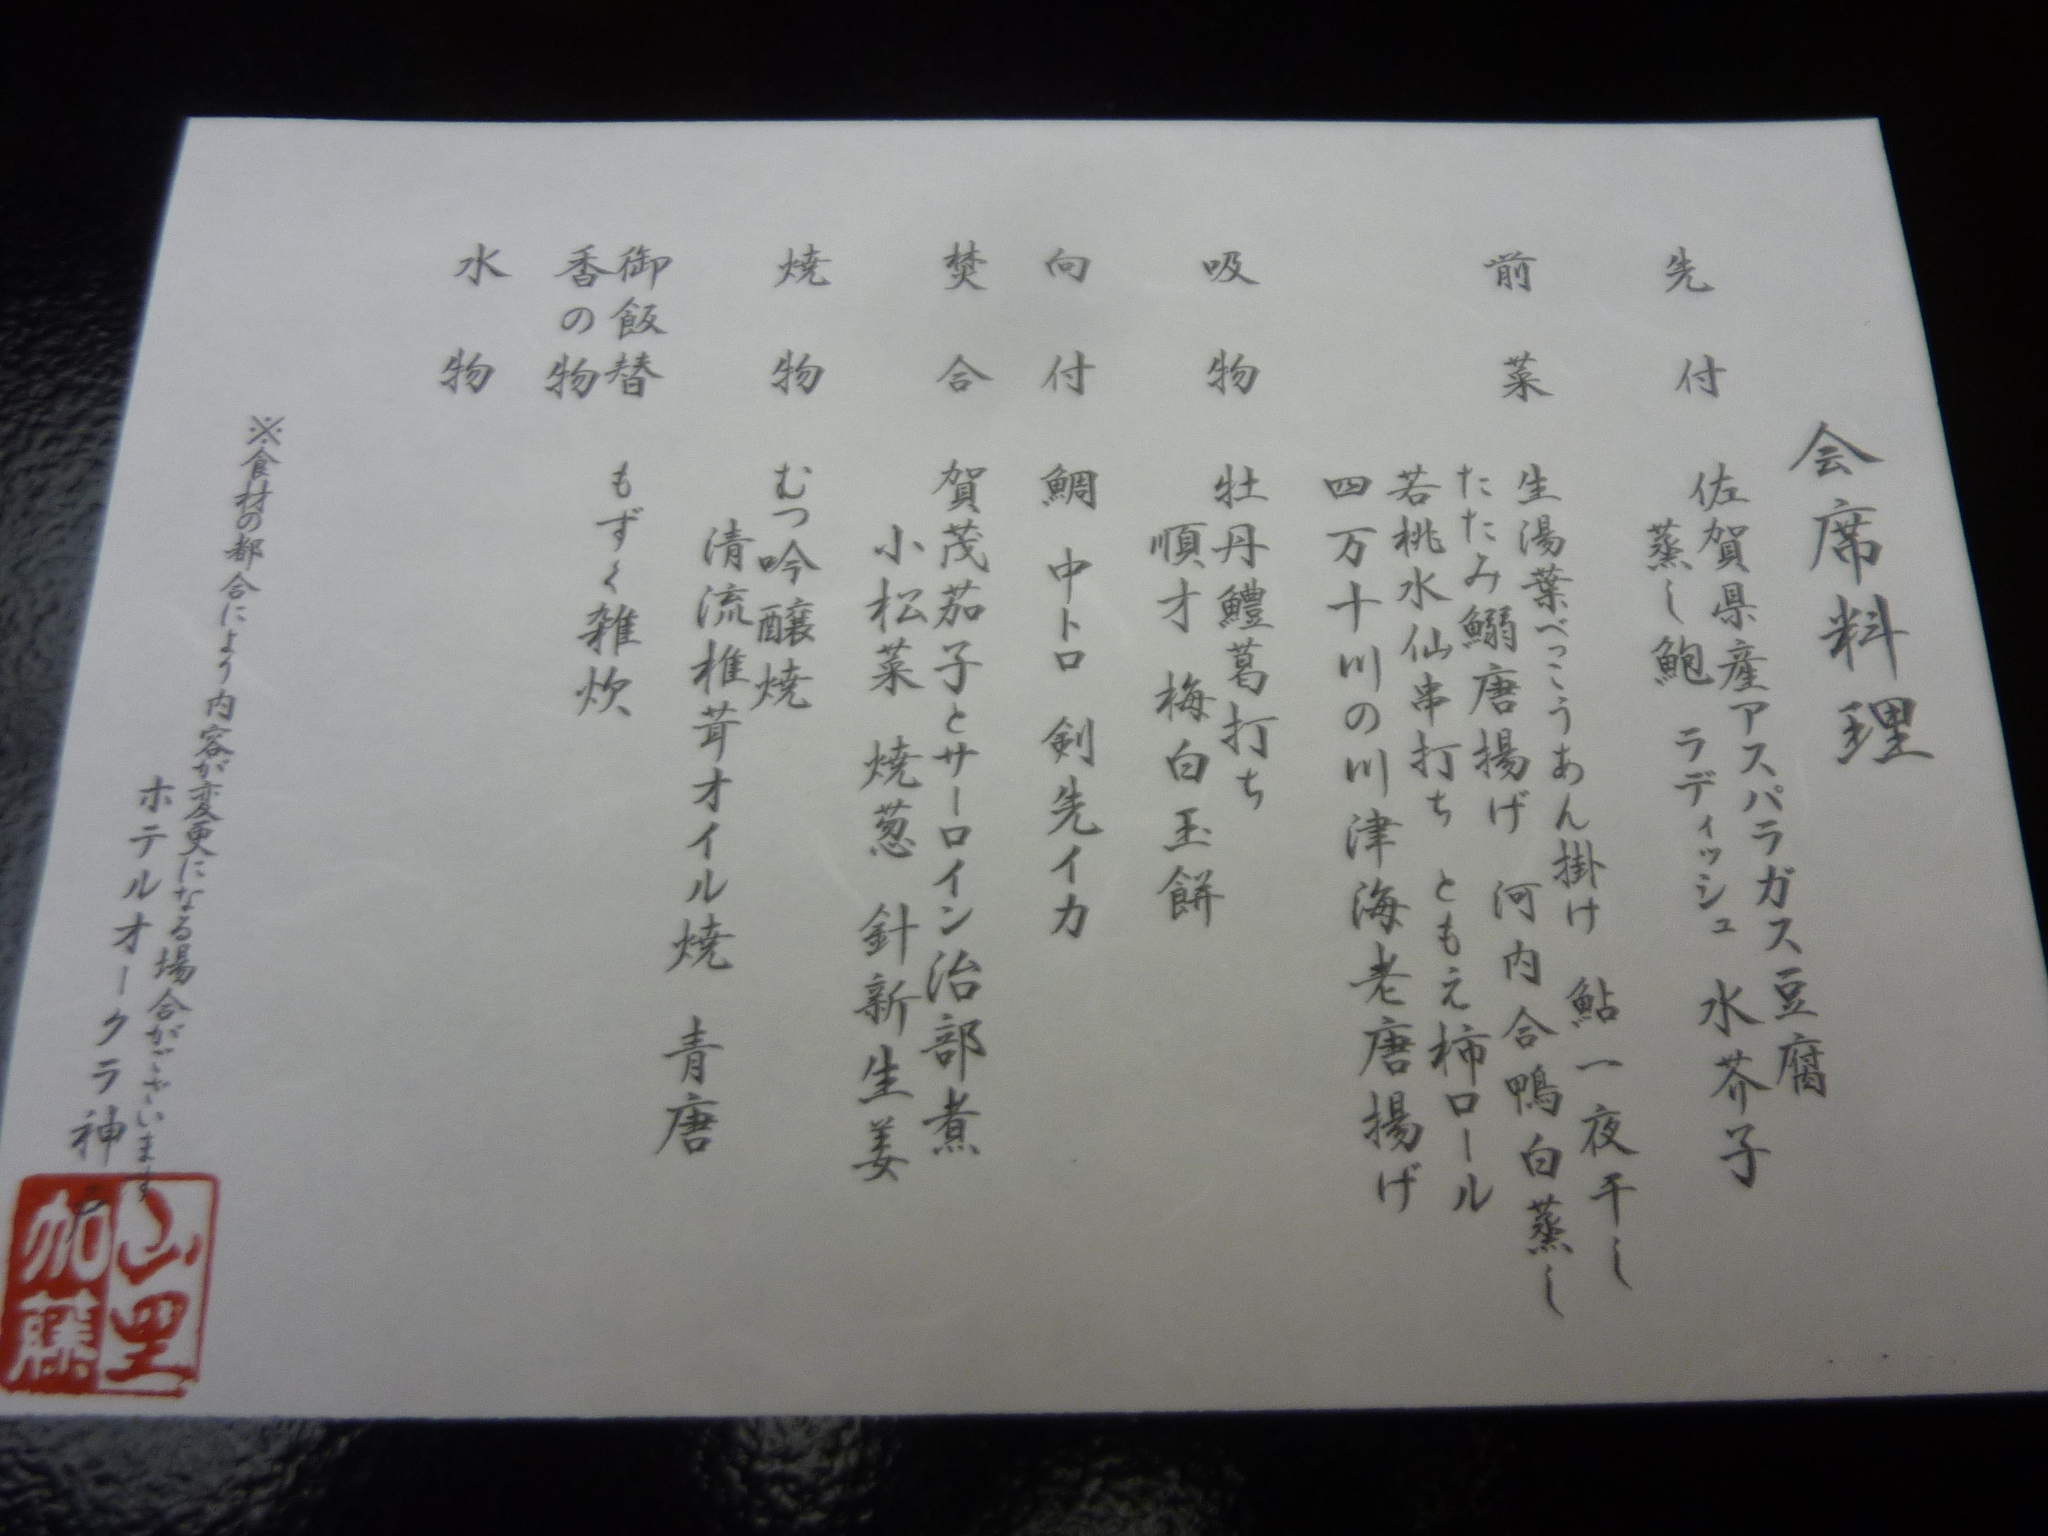 会席料理
先付
佐賀県産アスパラガス豆腐
蒸し鮑 ラディッシュ 水芥子
前菜
生湯葉べっこうあん掛け 鮎一夜干し
たたみ鰯唐揚げ 河内合鴨白蒸し
若桃水仙串打ち ともえ柿ロール
四万十川の川津海老唐揚げ
吸物
牡丹鱧葛打ち
順才 梅白玉餅
向付
鯛 中トロ 剣先イカ
焚合
賀茂茄子とサーロイン治部煮
小松菜 焼葱 針新生姜
焼物
むつ吟醸焼
清流椎茸オイル焼 青唐
御飯替
もずく雑炊
香の物
水物
※食材の都合により内容が変更になる場合がございます
ホテルオークラ神
山里
加藤